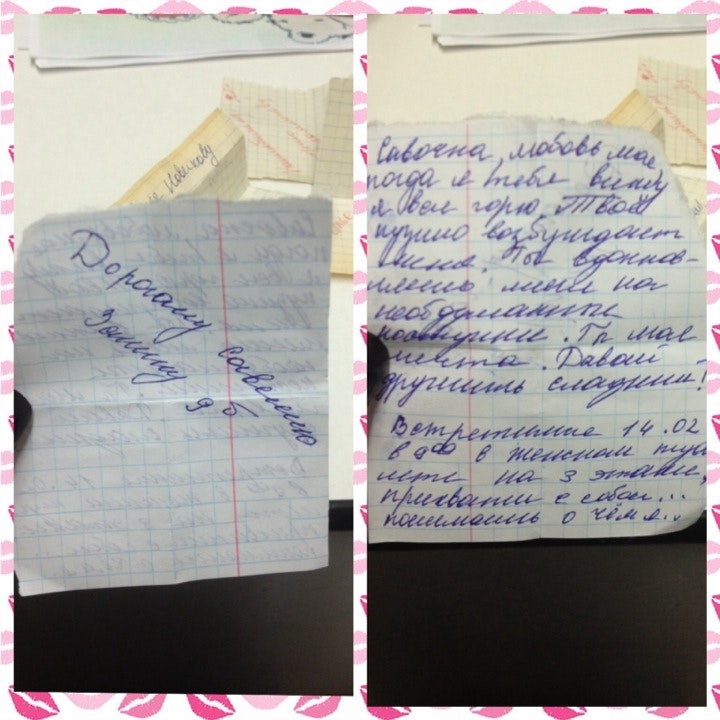 Дорогому Савелию
Зонину 9Б
Новикову
Савочка, любовь моя
когда я тебя вижу
я вся горю. Твоё
пузико возбуждает
меня. Ты вдохнов-
ляешь меня на
необдуманные
поступки. Ты моя
мечта. Давай
дружить сладкий!
Встретимся 14.02
в 9⁰⁰ в женском туа
лете на 3 этаже,
прихвати с собой...
понимаешь о чём я..